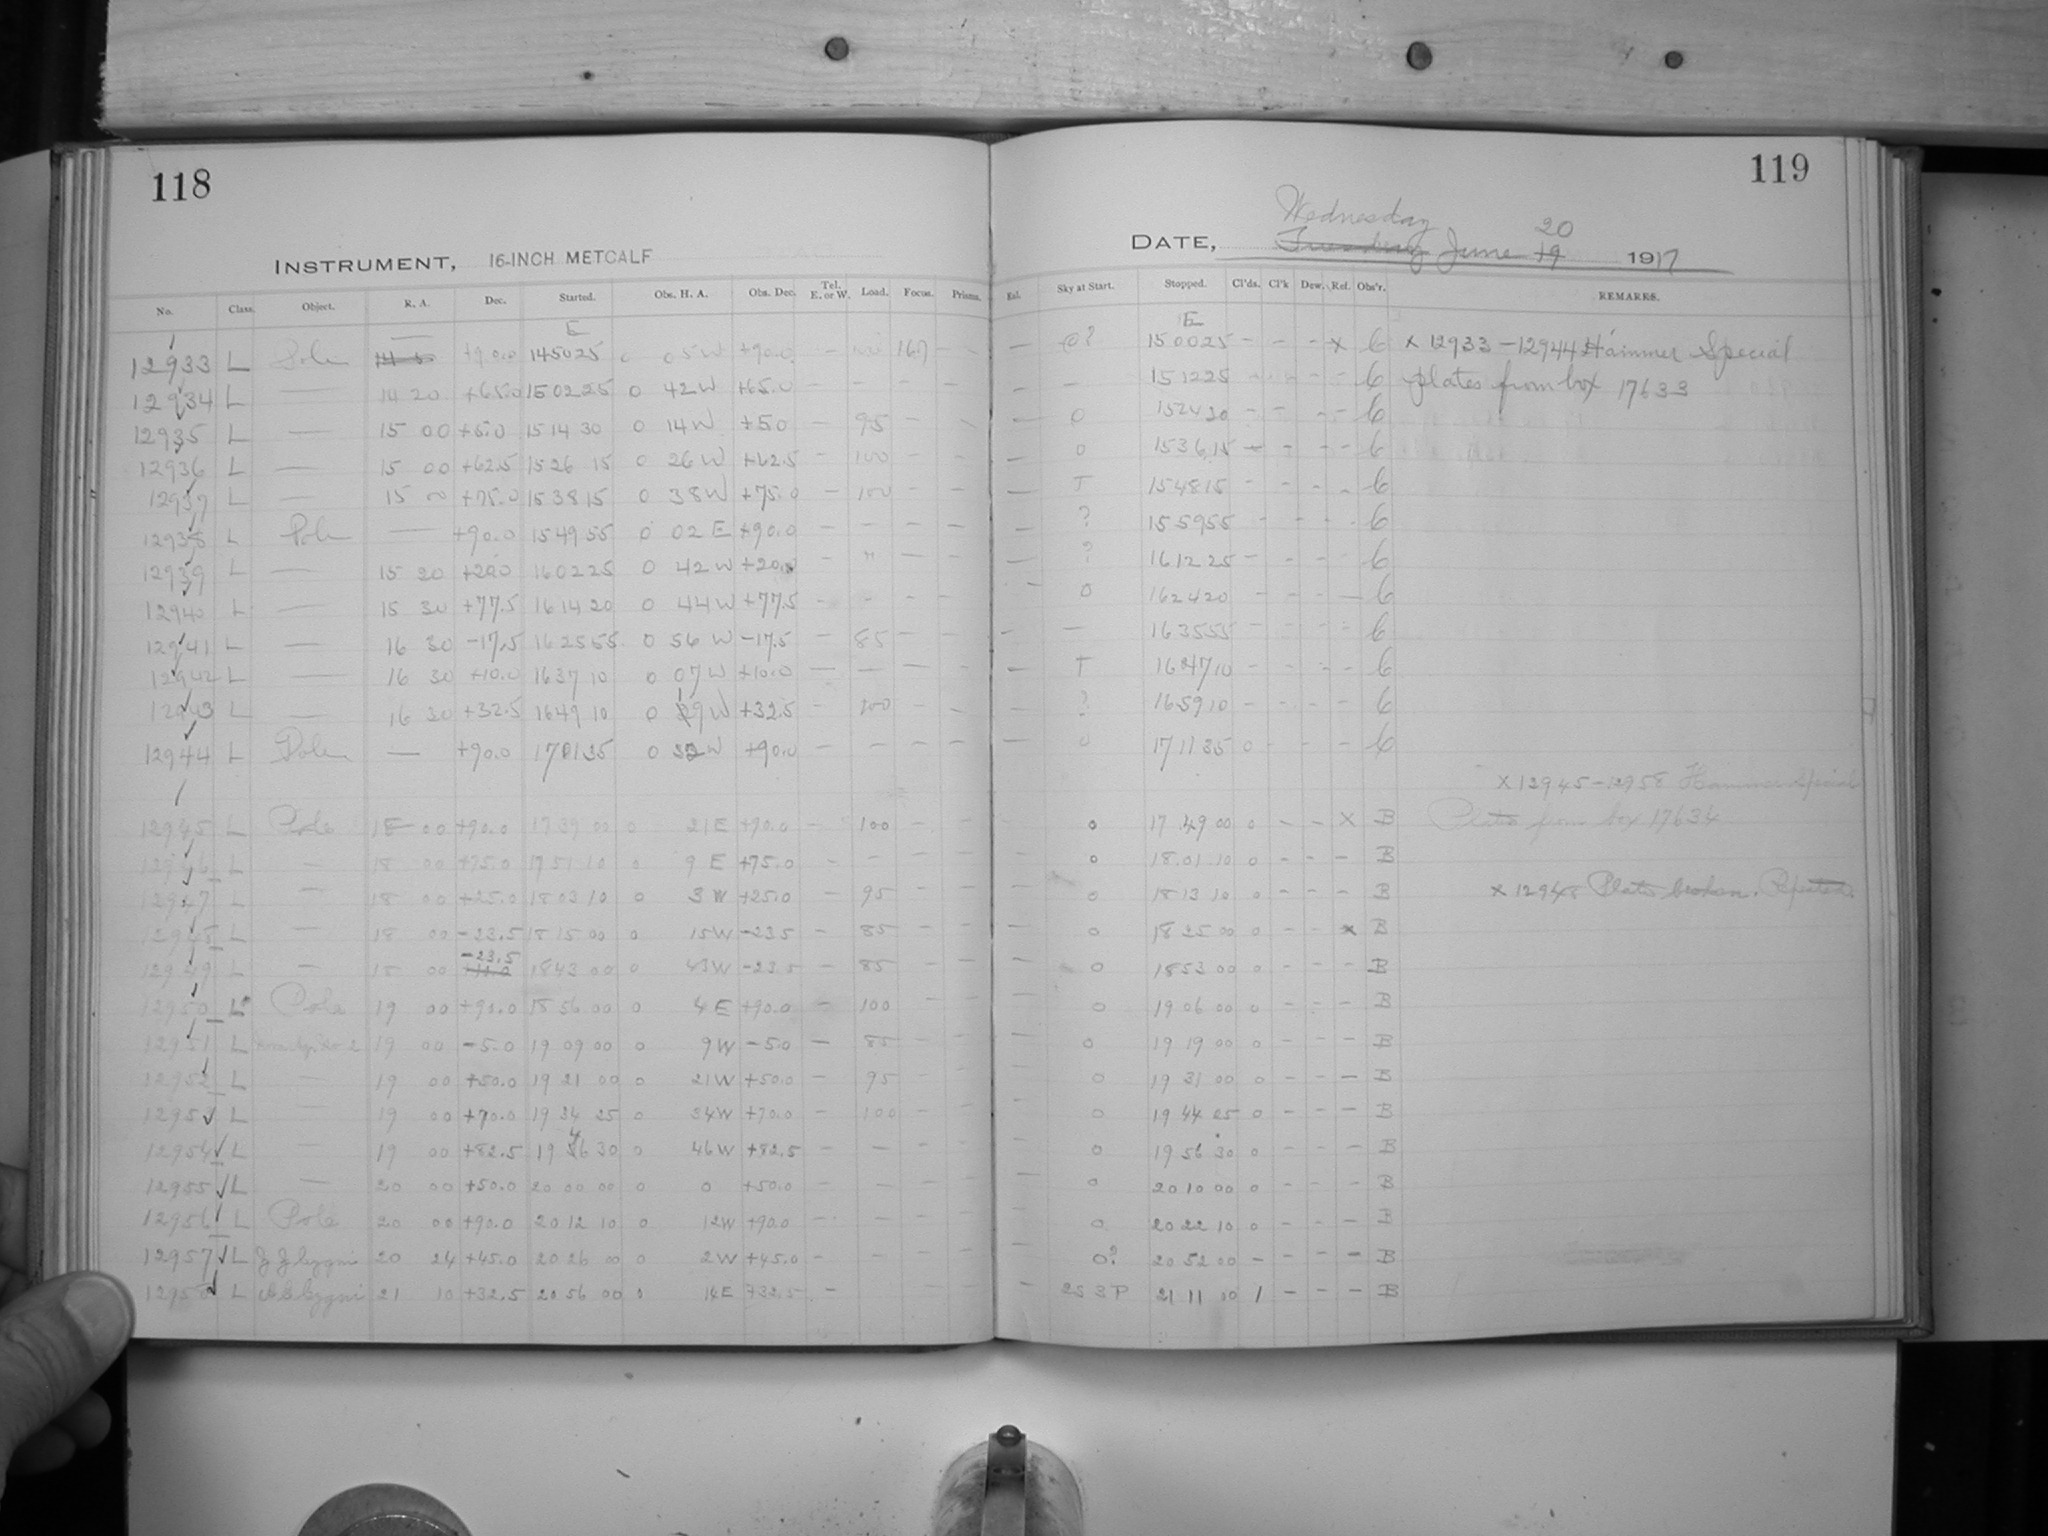 118
119
INSTRUMENT, 16-INCH METCALF
Wednesday 20
DATE, Tuesday June 19 1917
No. Class. Object. R. A. Dec. Started. Obs. H. A. Obs. Dec. Tel. E. or W. Load. Focus. Prisms. Exl. Sky at Start. Stopped. Cl'ds. Cl'k Dew. Ref. Obs'r. REMARKS.
E E
12933 L +90.0 145025 0 05W +90.0 - 100 167 - - 0? 150025 - - - x C x 12933 - 12944 Hammer Special
12934 L — 14 20 +65.0 150225 0 42W +65.0 - - - - - - 151225 - - - - C plates from box 17633
12935 L — 15 00 +5.0 151430 0 14W +5.0 - 95 - - - 0 152430 - - - - C
12936 L — 15 00 +62.5 152615 0 26W +62.5 - 100 - - - 0 153615 - - - - C
12937 L — 15 00 +75.0 153815 0 38W +75.0 - 100 - - - T 154815 - - - - C
12938 L Pole — +90.0 154955 0 02 E +90.0 - - - - - ? 155955 - - - - C
12939 L — 15 20 +20.0 160225 0 42W +20.0 - " - - - ? 161225 - - - - C
12940 L — 15 30 +77.5 161420 0 44W +77.5 - - - - - 0 162420 - - - - C
12941 L — 16 30 -17.5 162555 0 56W -17.5 - 85 - - - - 163555 - - - - C
12942 L — 16 30 +10.0 163710 0 07W +10.0 - - - - - T 164710 - - - - C
12943 L — 16 30 +32.5 164910 0 19W +32.5 - 100 - - - ? 165910 - - - - C
12944 L Pole — +90.0 170135 0 32W +90.0 - - - - - 0 171135 0 - - - C
x 12945-12958 Hammer Special
12945 L Pole 18 00 +90.0 17 39 00 0 21E +90.0 - 100 - - - 0 17 49 00 0 - - x B Plates from box 17634
12946 L — 18 00 +75.0 17 51 10 0 9 E +75.0 - - - - - 0 18 01 10 0 - - - B
12947 L — 18 00 +25.0 18 03 10 0 3 W +25.0 - 95 - - - 0 18 13 10 0 - - - B x 12948 Plate broken. Repeated
12948 L — 18 00 -23.5 18 15 00 0 15W -23.5 - 85 - - - 0 18 25 00 0 - - x B
12949 L — 18 00 -23.5 18 43 00 0 43W -23.5 - 85 - - - 0 18 53 00 0 - - - B
12950 L Pole 19 00 +90.0 18 56 00 0 4 E +90.0 - 100 - - - 0 19 06 00 0 - - - B
12951 L 19 00 -5.0 19 09 00 0 9W -5.0 - 85 - - - 0 19 19 00 0 - - - B
12952 L — 19 00 +50.0 19 21 00 0 21W +50.0 - 95 - - - 0 19 31 00 0 - - - B
12953 L — 19 00 +70.0 19 34 25 0 34W +70.0 - 100 - - - 0 19 44 25 0 - - - B
12954 L — 19 00 +82.5 19 46 30 0 46W +82.5 - - - - - 0 19 56 30 0 - - - B
12955 L — 20 00 +50.0 20 00 00 0 0 +50.0 - - - - - 0 20 10 00 0 - - - B
12956 L Pole 20 00 +90.0 20 12 10 0 12W +90.0 - - - - - 0 20 22 10 0 - - - B
12957 L Cygni 20 24 +45.0 20 26 00 0 2W +45.0 - - - - - 0? 20 52 00 - - - - B
12958 L Cygni 21 10 +32.5 20 56 00 0 14E +32.5 - - - - 2S 3P 21 11 00 1 - - - B